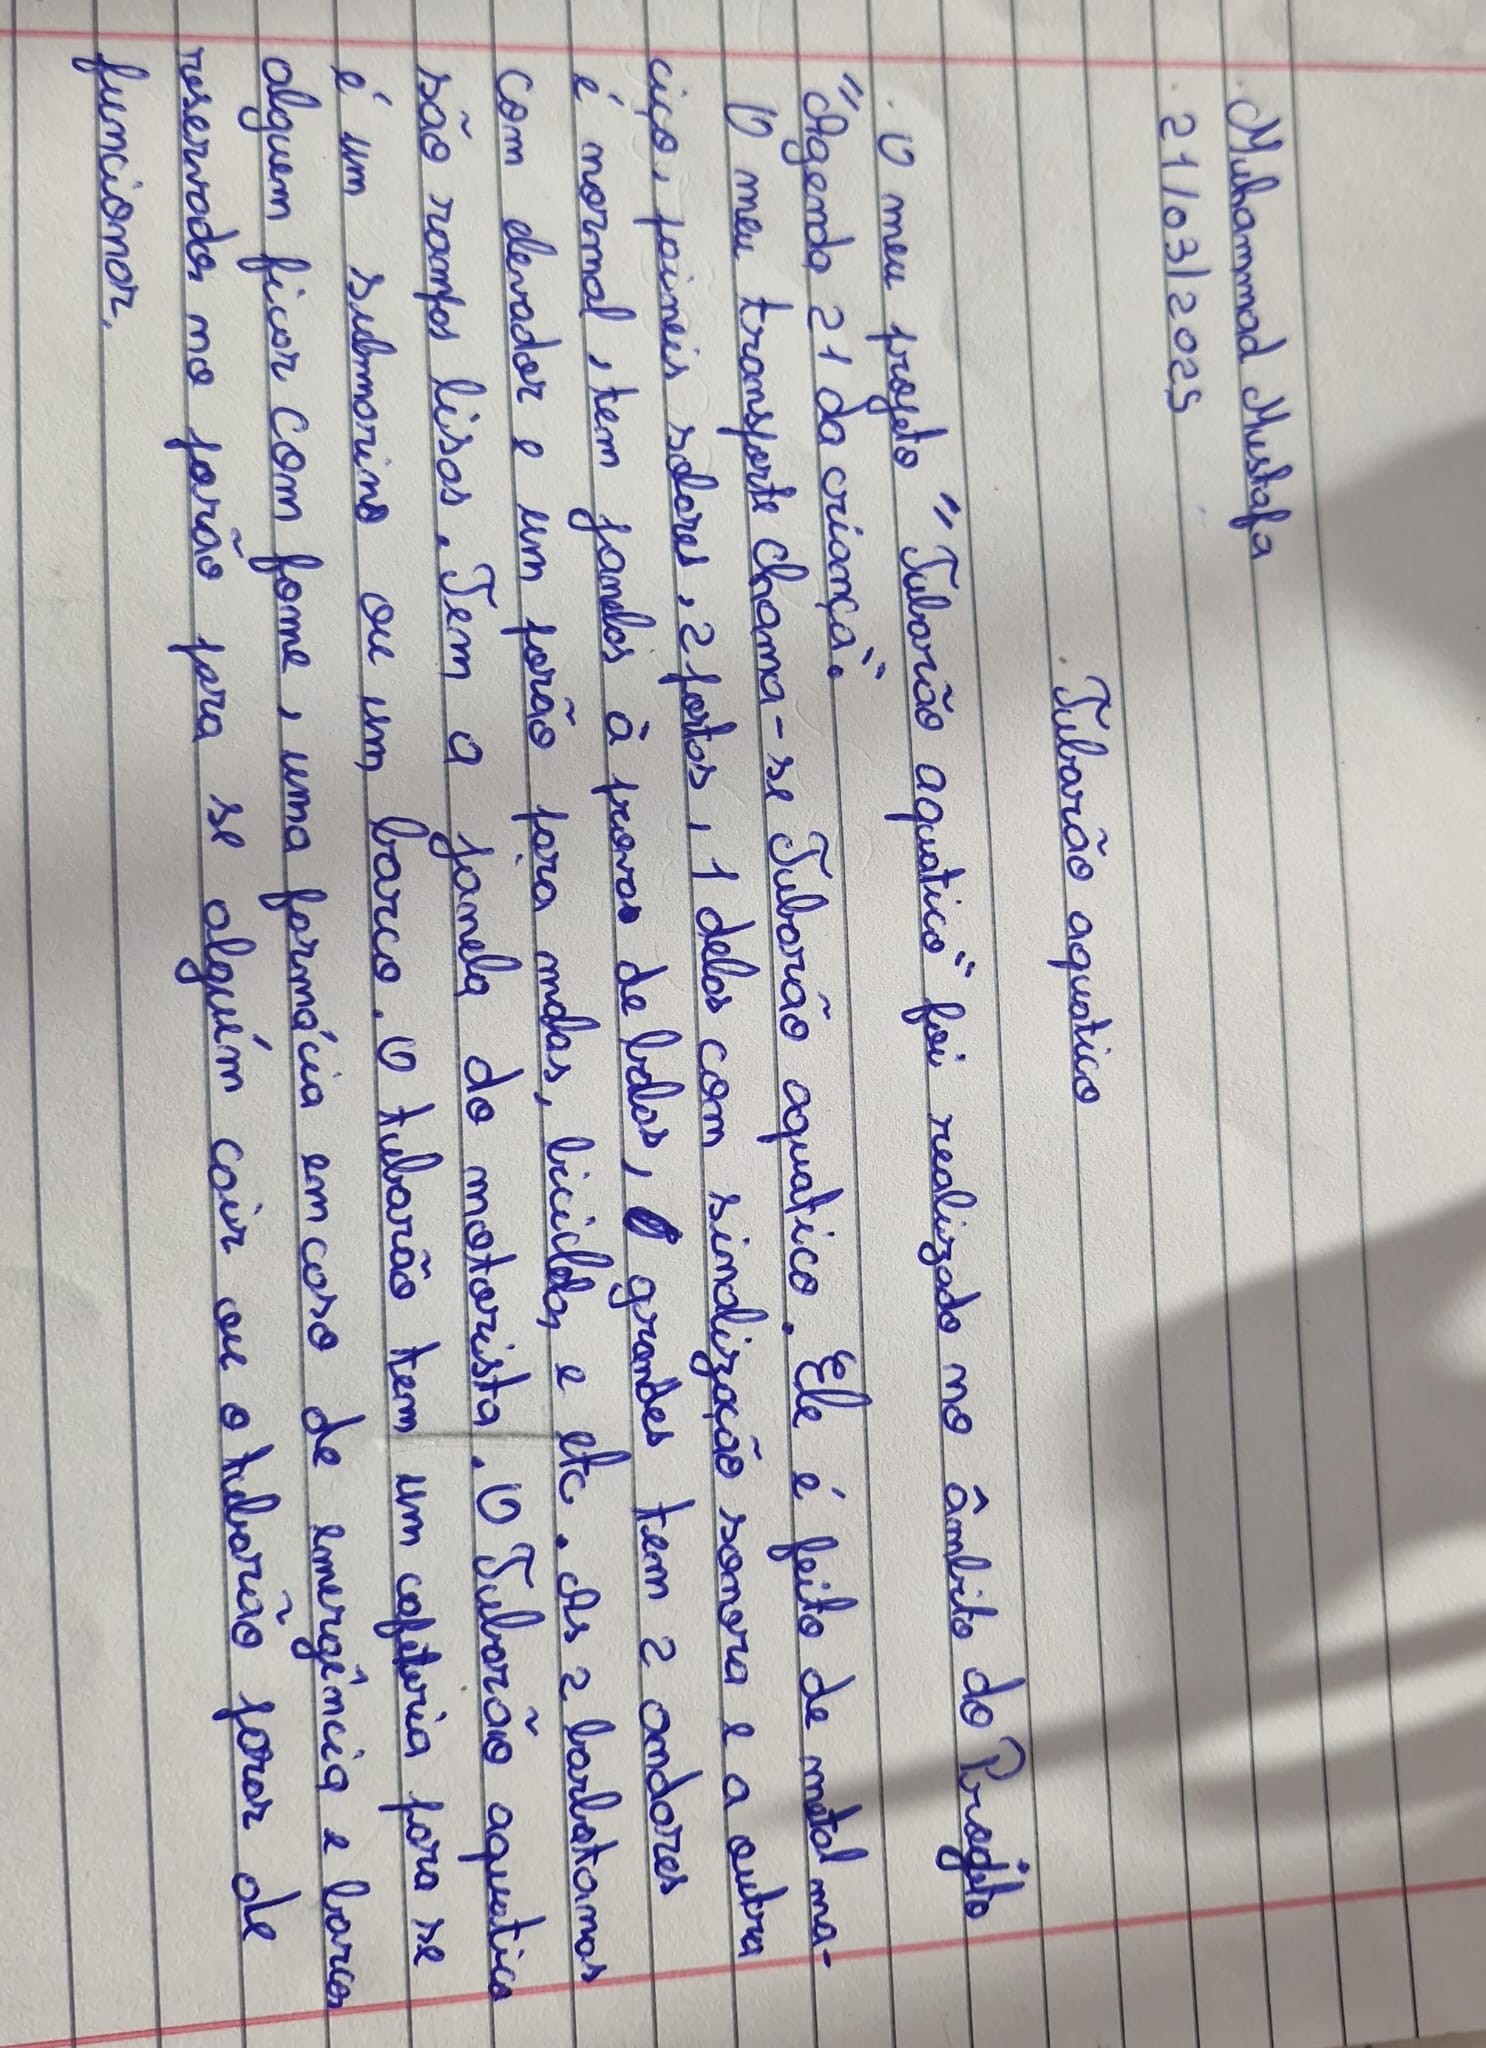 Muhammad Mustafa
21/03/2025
Tubarão aquatico
O meu projeto "Tubarão aquatico" foi realizado no âmbito do Progeto
"Agenda 21 da criança".
O meu transporte chama-se Tubarão aquatico. Ele é feito de metal ma-
ciço, paineis solares, 2 portas, 1 delas com sinalização sonora e a outra
é normal, tem janelas à provas de balas, grandes tem 2 andares
com elevador e um porão para malas, bicicletas e etc. As 2 barbatanas
são rampas lisas. Tem a janela do motorista. O Tubarão aquatico
é um submarino ou um barco. O tubarão tem um cafeteria para se
alguem ficar com fome, uma farmácia em caso de emergência e barcos
reservados no porão para se alguém cair ou o tubarião parar de
funcionar.